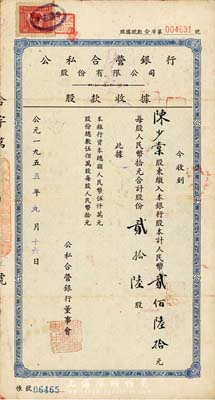 股據總數金字第004631號
公私合營銀行
股份有限公司
股款收據
今收到
陳少棠股東繳入本銀行股本計人民幣貳佰陸拾元
每股人民幣拾元合計股份貳拾陸股
此據
本銀行資本總額人民幣伍仟萬元
股份總數伍佰萬股每股人民幣拾元
公私合營銀行董事會
公元一九五五年九月十六日
帳號06465